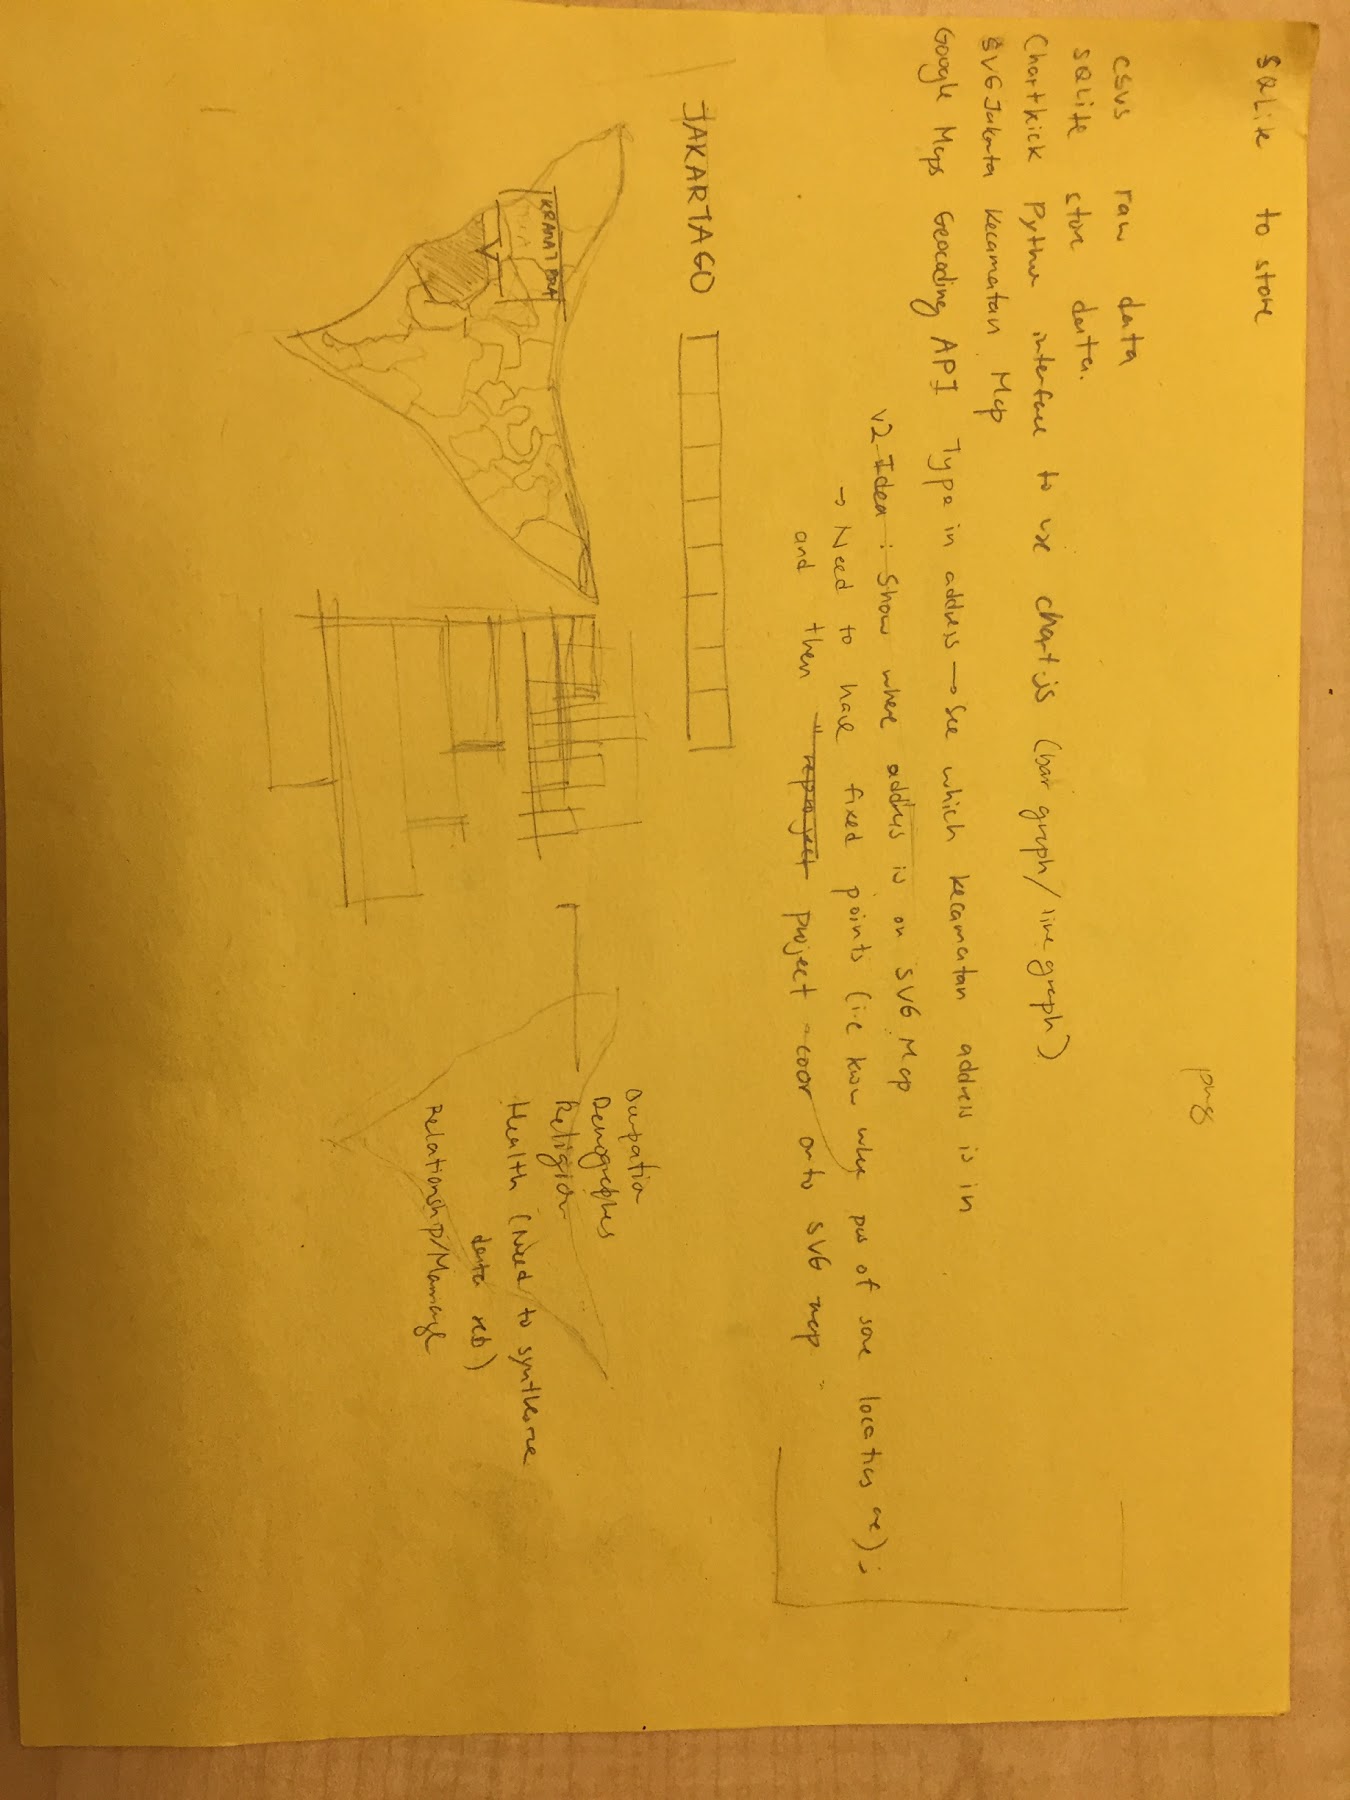 SQLite to store
png
CSVs raw data
SQLite store data.
Chartkick Python interface to use chart.js (bar graph/line graph)
SVG Jakarta Kecamatan Map
Google Maps Geocoding API Type in address → see which kecamatan address is in
v2 Idea : Show where address is on SVG Map
→ Need to have fixed points (i.e know where pos of some locations are);
and then "reproject project coor onto SVG map
JAKARTAGO
Occupation
Demographics
Religion
Health (Need to synthesize
data sets)
Relationship/Marriage